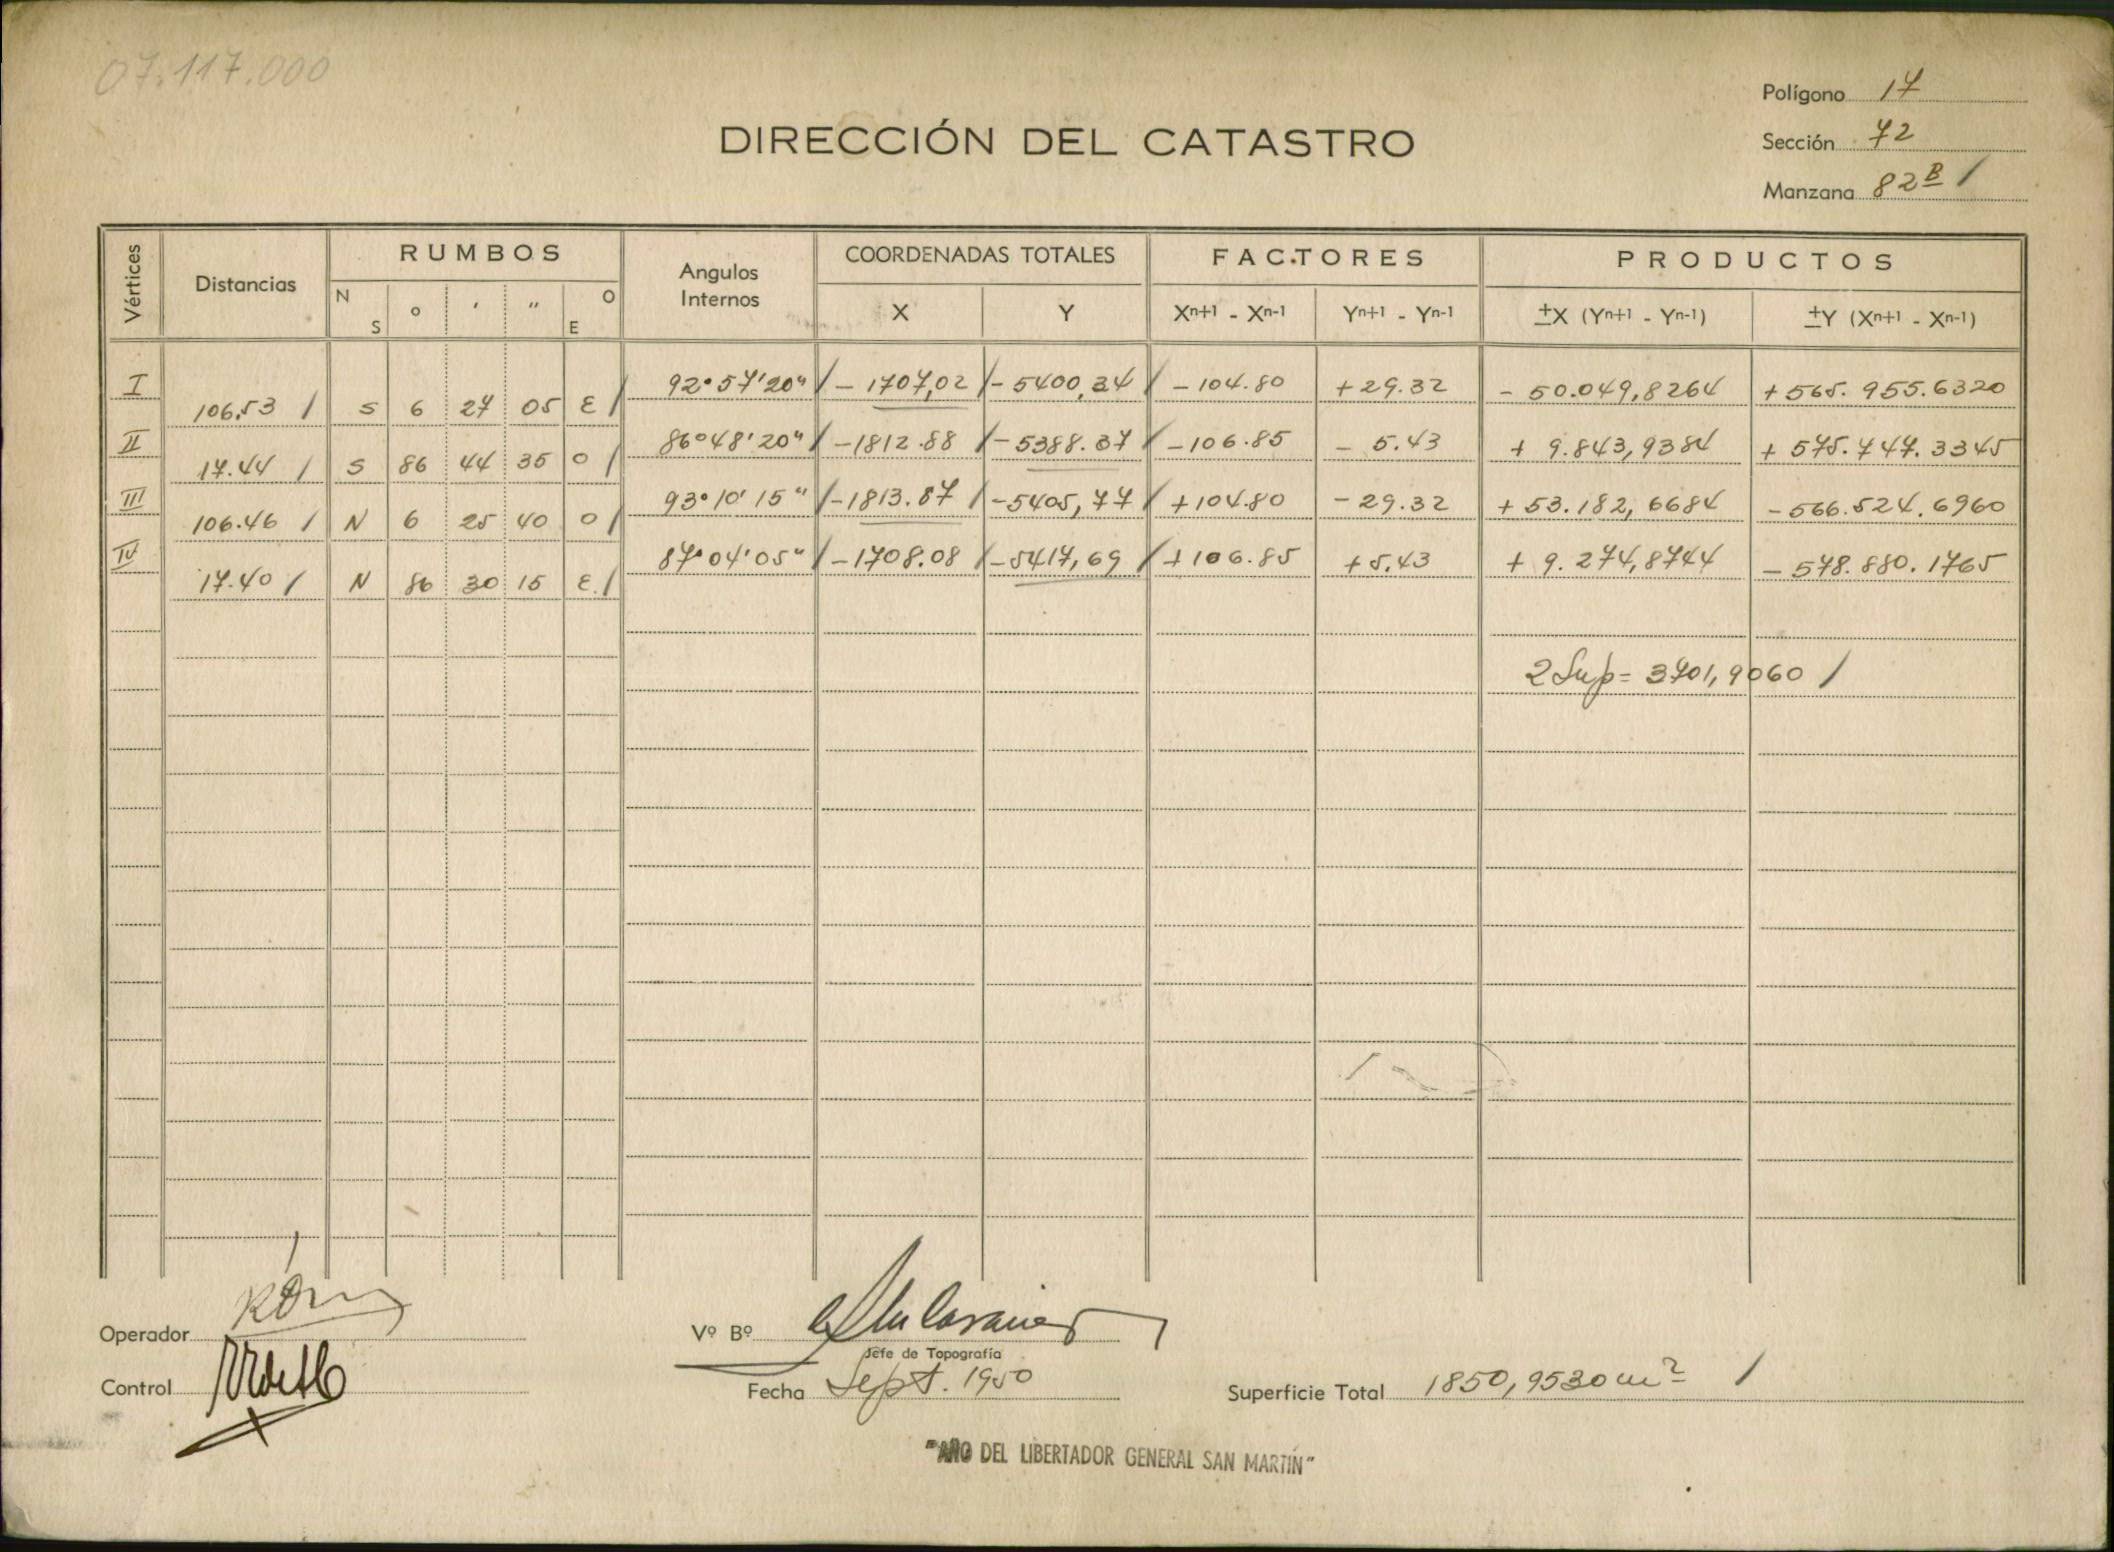 07.117.000
Polígono 17
DIRECCIÓN DEL CATASTRO
Sección 72
Manzana 82B /
Vértices Distancias RUMBOS Angulos Internos COORDENADAS TOTALES FACTORES PRODUCTOS
N S ° ' " O E X Y Xn+1 - Xn-1 Yn+1 - Yn-1 ±X (Yn+1 - Yn-1) ±Y (Xn+1 - Xn-1)
I 92°57'20" / - 1707,02 / - 5400,34 / - 104.80 + 29.32 - 50.049,8264 + 565.955.6320
106.53 / S 6 27 05 E /
II 86°48'20" / - 1812.88 / - 5388.37 / - 106.85 - 5.43 + 9.843,9384 + 575.747.3345
17.44 / S 86 44 35 O /
III 93°10'15" / - 1813.87 / - 5405,77 / + 104.80 - 29.32 + 53.182,6684 - 566.524.6960
106.46 / N 6 25 40 O /
IV 87°04'05" / - 1708.08 / - 5417,69 / + 106.85 + 5.43 + 9.274,8744 - 578.880.1765
17.40 / N 86 30 15 E. /
2 Sup = 3701,9060 /
Operador
Vº Bº
Jefe de Topografía
Control
Fecha Sept. 1950
Superficie Total 1850,9530 m2 /
"AÑO DEL LIBERTADOR GENERAL SAN MARTIN"